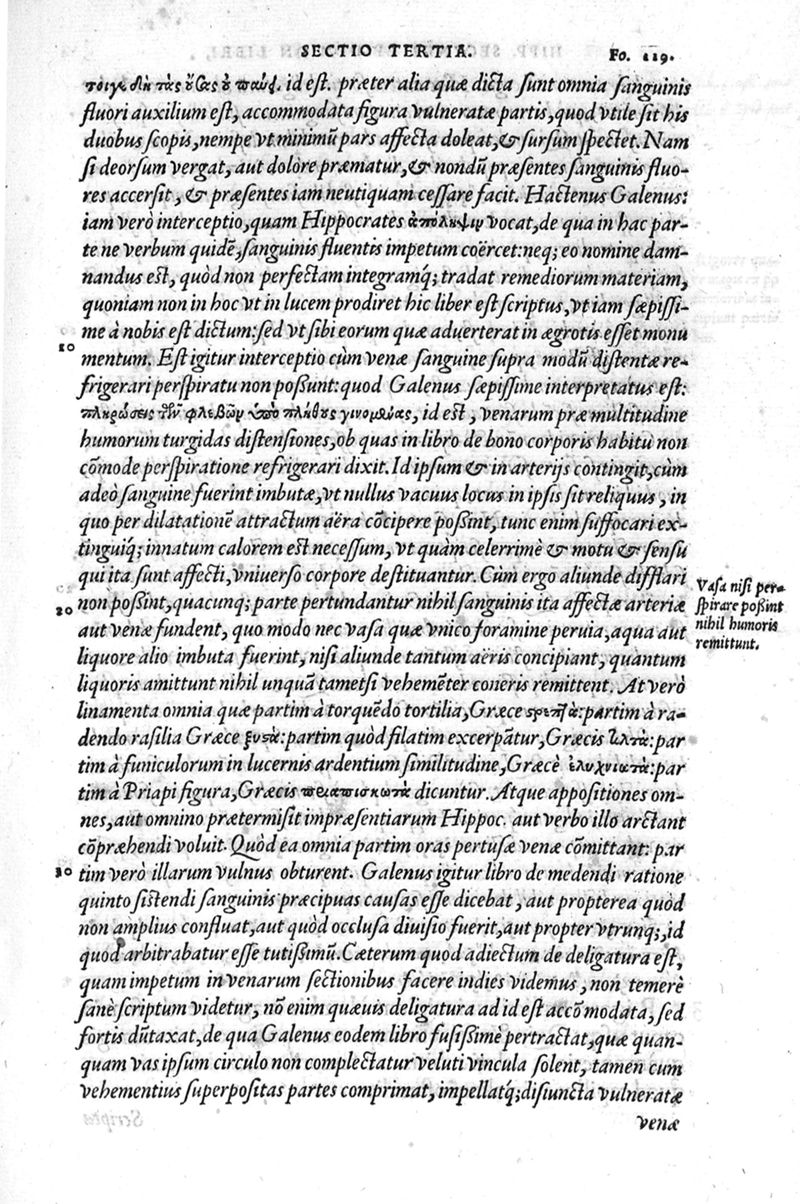 SECTIO TERTIA. Fo. 119.
τὰς id est. præter alia quæ dicta sunt omnia sanguinis
fluori auxilium est, accommodata figura vulneratæ partis, quod vtile sit his
duobus scopis, nempe vt minimū pars affecta doleat, & sursum spectet. Nam
si deorsum vergat, aut dolore præmatur, & nondū præsentes sanguinis fluo-
res accersit, & præsentes iam neutiquam cessare facit. Hactenus Galenus:
iam verò interceptio, quam Hippocrates ἀπόληψιν vocat, de qua in hac par-
te ne verbum quidē, sanguinis fluentis impetum coërcet: neq; eo nomine dam-
nandus est, quòd non perfectam integramq́; tradat remediorum materiam,
quoniam non in hoc vt in lucem prodiret hic liber est scriptus, vt iam sæpissi-
me à nobis est dictum: sed vt sibi eorum quæ aduerterat in ægrotis esset monu
10 mentum. Est igitur interceptio cùm venæ sanguine supra modū distentæ re-
frigerari perspiratu non possunt: quod Galenus sæpissime interpretatus est:
πληρώσεις τῶν φλεβῶν ὑπὸ πλήθους γινομένας, id est, venarum præ multitudine
humorum turgidas distensiones, ob quas in libro de bono corporis habitu non
cōmode perspiratione refrigerari dixit. Id ipsum & in arterijs contingit, cùm
adeò sanguine fuerint imbutæ, vt nullus vacuus locus in ipsis sit reliquus, in
quo per dilatationē attractum aëra cōcipere possint, tunc enim suffocari ex-
tinguiq́; innatum calorem est necessum, vt quàm celerrimè & motu & sensu
qui ita sunt affecti, vniuerso corpore destituantur. Cùm ergo aliunde difflari
20 non possint, quacunq; parte pertundantur nihil sanguinis ita affectæ arteriæ
aut venæ fundent, quo modo nec vasa quæ vnico foramine peruia, aqua aut
liquore alio imbuta fuerint, nisi aliunde tantum aëris concipiant, quantum
liquoris amittunt nihil unquā tametsi vehemēter coneris remittent. At verò
Vasa nisi per-
spirare possint
nihil humoris
remittunt.
linamenta omnia quæ partim à torquēdo tortilia, Græce στρεπτὰ: partim à ra-
dendo rasilia Græce ξυστὰ: partim quòd filatim excerpātur, Græcis τιλτὰ: par
tim à funiculorum in lucernis ardentium similitudine, Græcè ἐλυχνιωτὰ: par
tim à Priapi figura, Græcis πριαπισκωτὰ dicuntur. Atque appositiones om-
nes, aut omnino prætermisit impræsentiarum Hippoc. aut verbo illo arctant
cōpræhendi voluit. Quòd ea omnia partim oras pertusæ venæ cōmittant: par
30 tim verò illarum vulnus obturent. Galenus igitur libro de medendi ratione
quinto sistendi sanguinis præcipuas causas esse dicebat, aut propterea quòd
non amplius confluat, aut quòd occlusa diuisio fuerit, aut propter vtrunq;, id
quod arbitrabatur esse tutissimū. Cæterum quod adiectum de deligatura est,
quam impetum in venarum sectionibus facere indies videmus, non temerè
sanè scriptum videtur, nō enim quæuis deligatura ad id est accōmodata, sed
fortis dūtaxat, de qua Galenus eodem libro fusissimè pertractat, quæ quan-
quam vas ipsum circulo non complectatur veluti vincula solent, tamen cum
vehementius superpositas partes comprimat, impellatq́; disiuncta vulneratæ
venæ